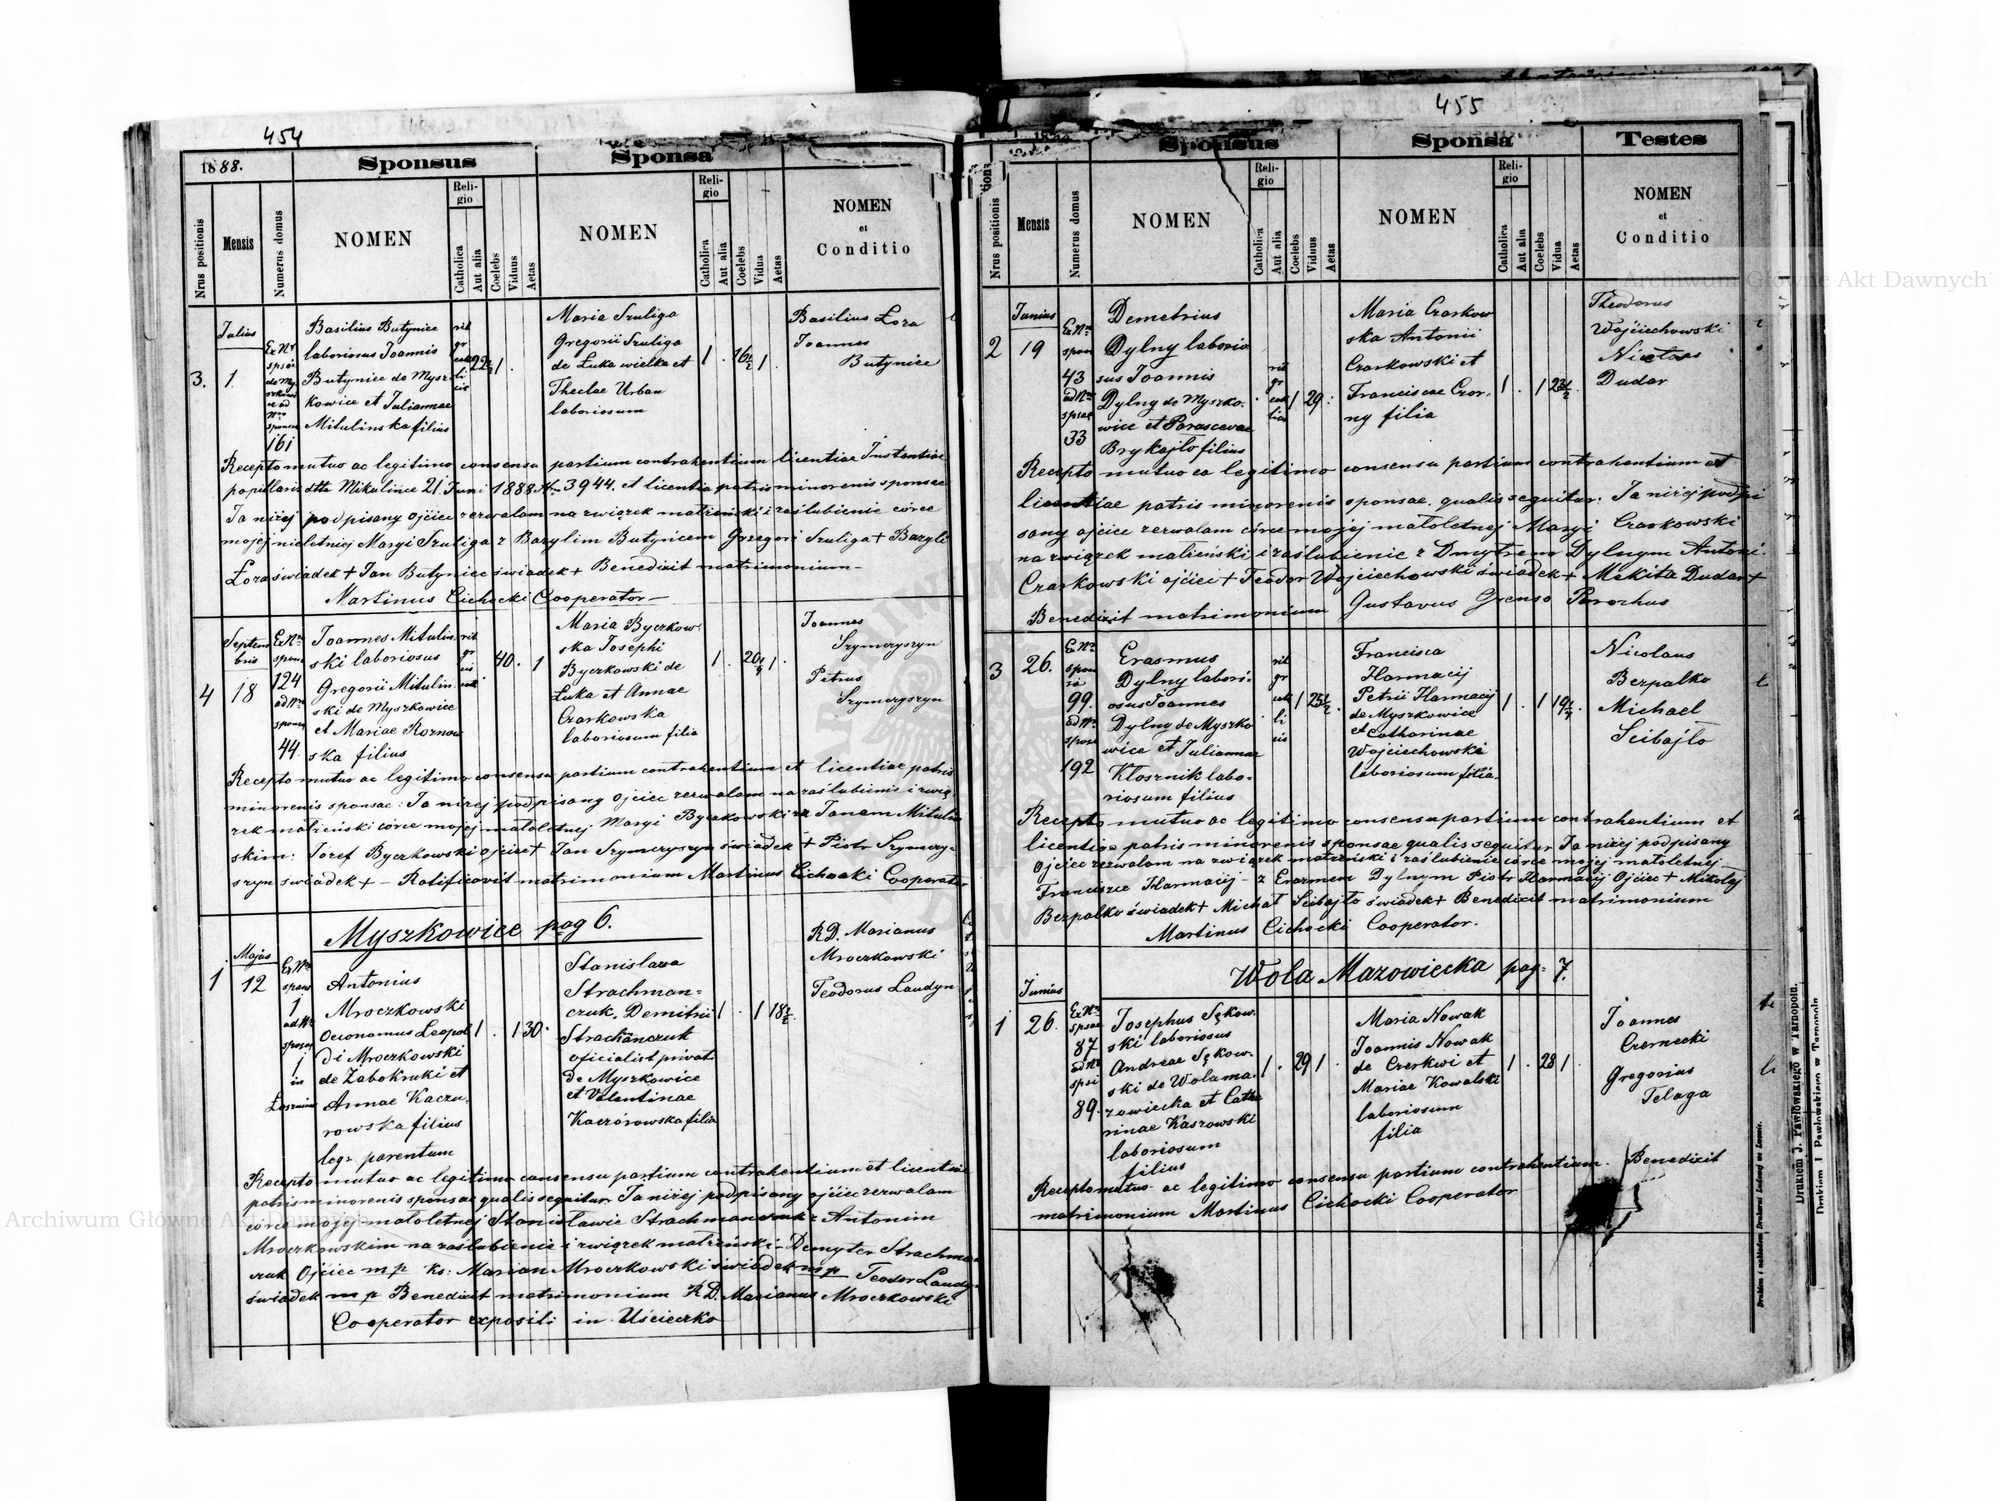 454
1888.
Sponsus
Sponsa
Nrus positionis
Mensis
Numerus domus
NOMEN
Religio
Catholica
Aut alia
Coelebs
Viduus
Aetas
NOMEN
Religio
Catholica
Aut alia
Coelebs
Vidua
Aetas
NOMEN
et
Conditio
Julius
3. 1.
Ex Nr
sponsae
de Mysz
kowice
ad
Nrum
sponsi
161
Basilius Butynice
laboriosus Joannis
Butynice de Mysz
kowice et Juliannae
Mitulinska filius
rit
gr
cath
22½ 1.
Maria Szuliga
Gregorii Szuliga
de Łuka wielka et
Theclae Urban
laboriosum
1 . 16½ 1.
Basilius Łoza
Joannes
Butynice
Recepto mutuo ac legitimo consensu partium contrahentium licentiae Instantiae
pupillaris dtto Mikulince 21 Juni 1888. No 3944. et licentia patris minorenis sponsae
Ja niżej podpisany ojciec zezwalam na związek małżeński i zaślubienie córce
mojej nieletniej Maryi Szuliga z Bazylim Butynicem Grzegorz Szuliga + Bazyli
Łoza świadek + Jan Butynice świadek + Benedixit matrimonium
Martinus Cichocki Cooperator
Septem
bris
4 18
Ex Nro
spons
124
ad Nro
sponsi
44.
Joannes Mitulin
ski laboriosus
Gregorii Mitulin
ski de Myszkowice
et Mariae Roznow
ska filius
rit
gr
40. 1
Maria Byczkow
ska Josephi
Byczkowski de
Łuka et Annae
Czarkowska
laboriosum filia
1 . 20½ 1.
Joannes
Szymczyszyn
Petrus
Szymczyszyn
Recepto mutuo ac legitimo consensu partium contrahentium et licentiae patris
minorenis sponsae: Ja niżej podpisany Ojciec zezwalam na zaślubienie i zwią
zek małżeński córce mojej małoletniej Maryi Byczkowski za Janem Mitulin
skim: Józef Byczkowski ojciec + Jan Szymczyszyn świadek + Piotr Szymczy-
szyn świadek + - Ratificavit matrimonium Martinus Cichocki Cooperator
Myszkowice pag 6.
Majus
1 12
Ex Nro
spons
1
ad Nro
sponsae
1
in
Antonius
Mroczkowski
Oeconomus Leopol
di Mroczkowski
de Zabokruki et
Annae Kaczu.
rowska filius
leg. parentum
1. 1 30.
Stanislava
Strachman=
czuk, Demitrii
Strachanczuk
oficialist privat.
de Myszkowice
et Valentinae
Kaczórowska filia
1 . 1 18½.
RD. Marianus
Mroczkowski
Teodorus Laudyn
Recepto mutuo ac legitimo consensu partium contrahentium et licentiae
patris minorenis sponsae qualis sequitur Ja niżej podpisany ojciec zezwalam
córce mojej małoletniej Stanisławie Strachmanczuk z Antonim
Mroczkowskim na zaślubienie i związek małżeński - Demyter Strachman
czuk Ojciec mp ks: Marian Mroczkowski świadek mp Teodor Laudyn
świadek mp Benedixit matrimonium RD. Marianus Mroczkowski
Cooperator expositi in Uścieczko
455
Sponsus
Sponsa
Testes
Nrus positionis
Mensis
Numerus domus
NOMEN
Religio
Catholica
Aut alia
Coelebs
Viduus
Aetas
NOMEN
Religio
Catholica
Aut alia
Coelebs
Vidua
Aetas
NOMEN
et
Conditio
Junius
2 19
Ex Nro
spon
43
ad Nro
sponsae
33
Demetrius
Dylny laborio
sus Joannis
Dylny de Myszko.
wice et Parascevae
Brykajło filius
rit
gr
cat
1 29.
Maria Czarkow
ska Antonii
Czarkowski et
Franciscae Czor.
ny filia
1 . 1 23½.
Theodorus
Wojciechowski
Nicetas
Dudar
Recepto mutuo ac legitimo consensu partium contrahentium et
licentiae patris minorenis sponsae, qualis sequitur: Ja niżej podpi
sany ojciec zezwalam córce mojej małoletniej Maryi Czarkowski
na związek małżeński i zaślubienie z Dmytrem Dylnym Antoni
Czarkowski ojciec + Teodor Wojciechowski świadek + Mekita Dudar +
Benedixit matrimonium Gustavus Parochus
3 26.
Ex Nro
spon
99.
ad Nro
192
Erasmus
Dylny labori.
osus Joannes
Dylny de Myszko
wice et Juliannae
Kłosznik labo.
riosum filius
rit
gr
1 25½.
Francisca
Harmacij
Petrii Harmacij
de Myszkowice
et Catharinae
Wojciechowski
laboriosum filia.
1. 1 19¼.
Nicolaus
Bezpalko
Michael
Scibajło
Recepto mutuo ac legitimo consensu partium contrahentium et
licentiae patris minorenis sponsae qualis sequitur Ja niżej podpisany
Ojciec zezwalam na związek małżeński i zaślubienie córce mojej małoletniej
Franciszce Harmacij - z Erazmem Dylnym Piotr Harmacij Ojciec + Mikołaj
Bezpalko świadek + Michał Scibajło świadek + Benedixit matrimonium
Martinus Cichocki Cooperator.
Wola Mazowiecka pag. 7.
Junius
1 26.
Ex Nro
sponsae
87
ad Nro
spsi
89.
Josephus Sękow.
ski laboriosus
Andreae Sękow.
ski de Wola ma.
zowiecka et Catha
rinae Kaszowski
laboriosum
filius
1. 29 1.
Maria Nowak
Joannis Nowak
de Czerkwi et
Mariae Kowalski
laboriosum
filia
1 . 28 1
Joannes
Czernecki
Gregorius
Telaga
Recepto mutuo ac legitimo consensu partium contrahentium. Benedixit
matrimonium Martinus Cichocki Cooperator
Drukiem J. Pawłowskiego w Tarnopolu.
Archiwum Główne Akt Dawnych
Archiwum Główne Akt Dawnych